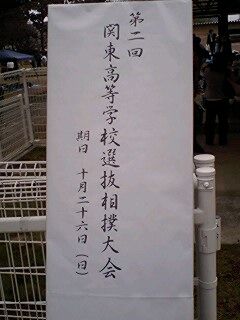 第二回
関東高等学校選抜相撲大会
期日 十月二十六日(日)